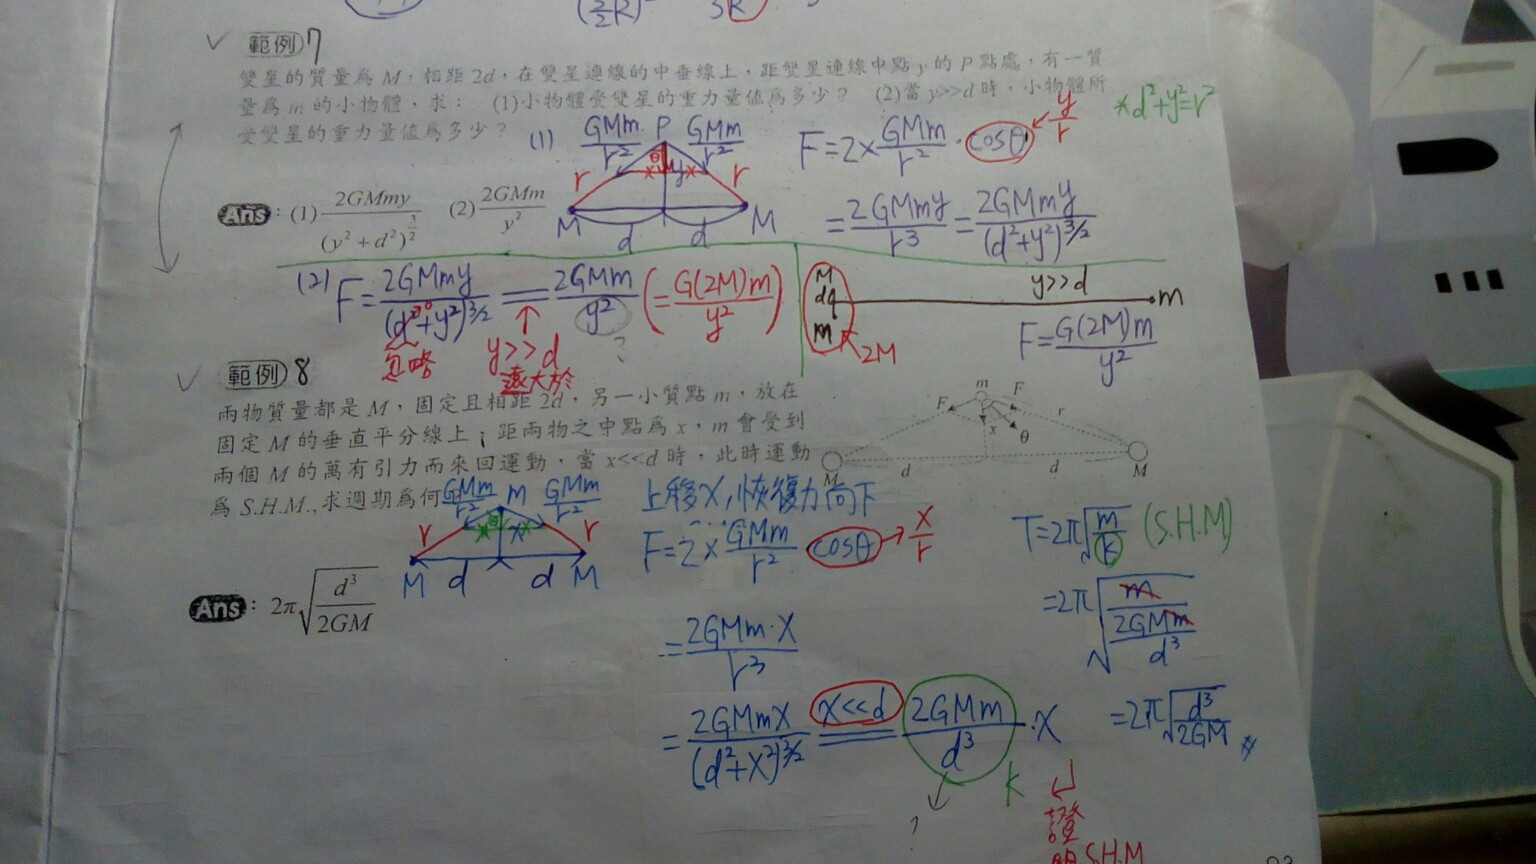 範例 7
雙星的質量為 M，相距 2d，在雙星連線的中垂線上，距雙星連線中點 y 的 P 點處，有一質
量為 m 的小物體，求： (1)小物體受雙星的重力量值為多少？ (2)當 y>>d 時，小物體所
受雙星的重力量值為多少？
*d²+y²=r²
(1) GMm/r² P GMm/r²
θ y
r r
M d d M
F=2×GMm/r²·cosθ ← y/r
=2GMmy/r³=2GMmy/(d²+y²)^3/2
Ans：(1) 2GMmy/(y²+d²)^3/2 (2) 2GMm/y²
(2) F=2GMmy/(d²+y²)^3/2 = 2GMm/y² (=G(2M)m/y²)
忽略
y>>d
遠大於
?
M
d
m
2M
y>>d
m
F=G(2M)m/y²
範例 8
兩物質量都是 M，固定且相距 2d，另一小質點 m，放在
固定 M 的垂直平分線上；距兩物之中點為 x，m 會受到
兩個 M 的萬有引力而來回運動，當 x<<d 時，此時運動
為 S.H.M.，求週期為何
m F
F r
x θ
d d
M M
GMm/r² m GMm/r²
r θ x r
M d d M
Ans：2π√(d³/2GM)
上移X,恢復力向下
F=2×GMm/r² cosθ → x/r
=2GMm·X/r³
=2GMmX/(d²+X²)^3/2 x<<d = 2GMm/d³·X
K
?
證
明S.H.M
T=2π√(m/k) (S.H.M)
=2π√(m/(2GMm/d³))
=2π√(d³/2GM) #